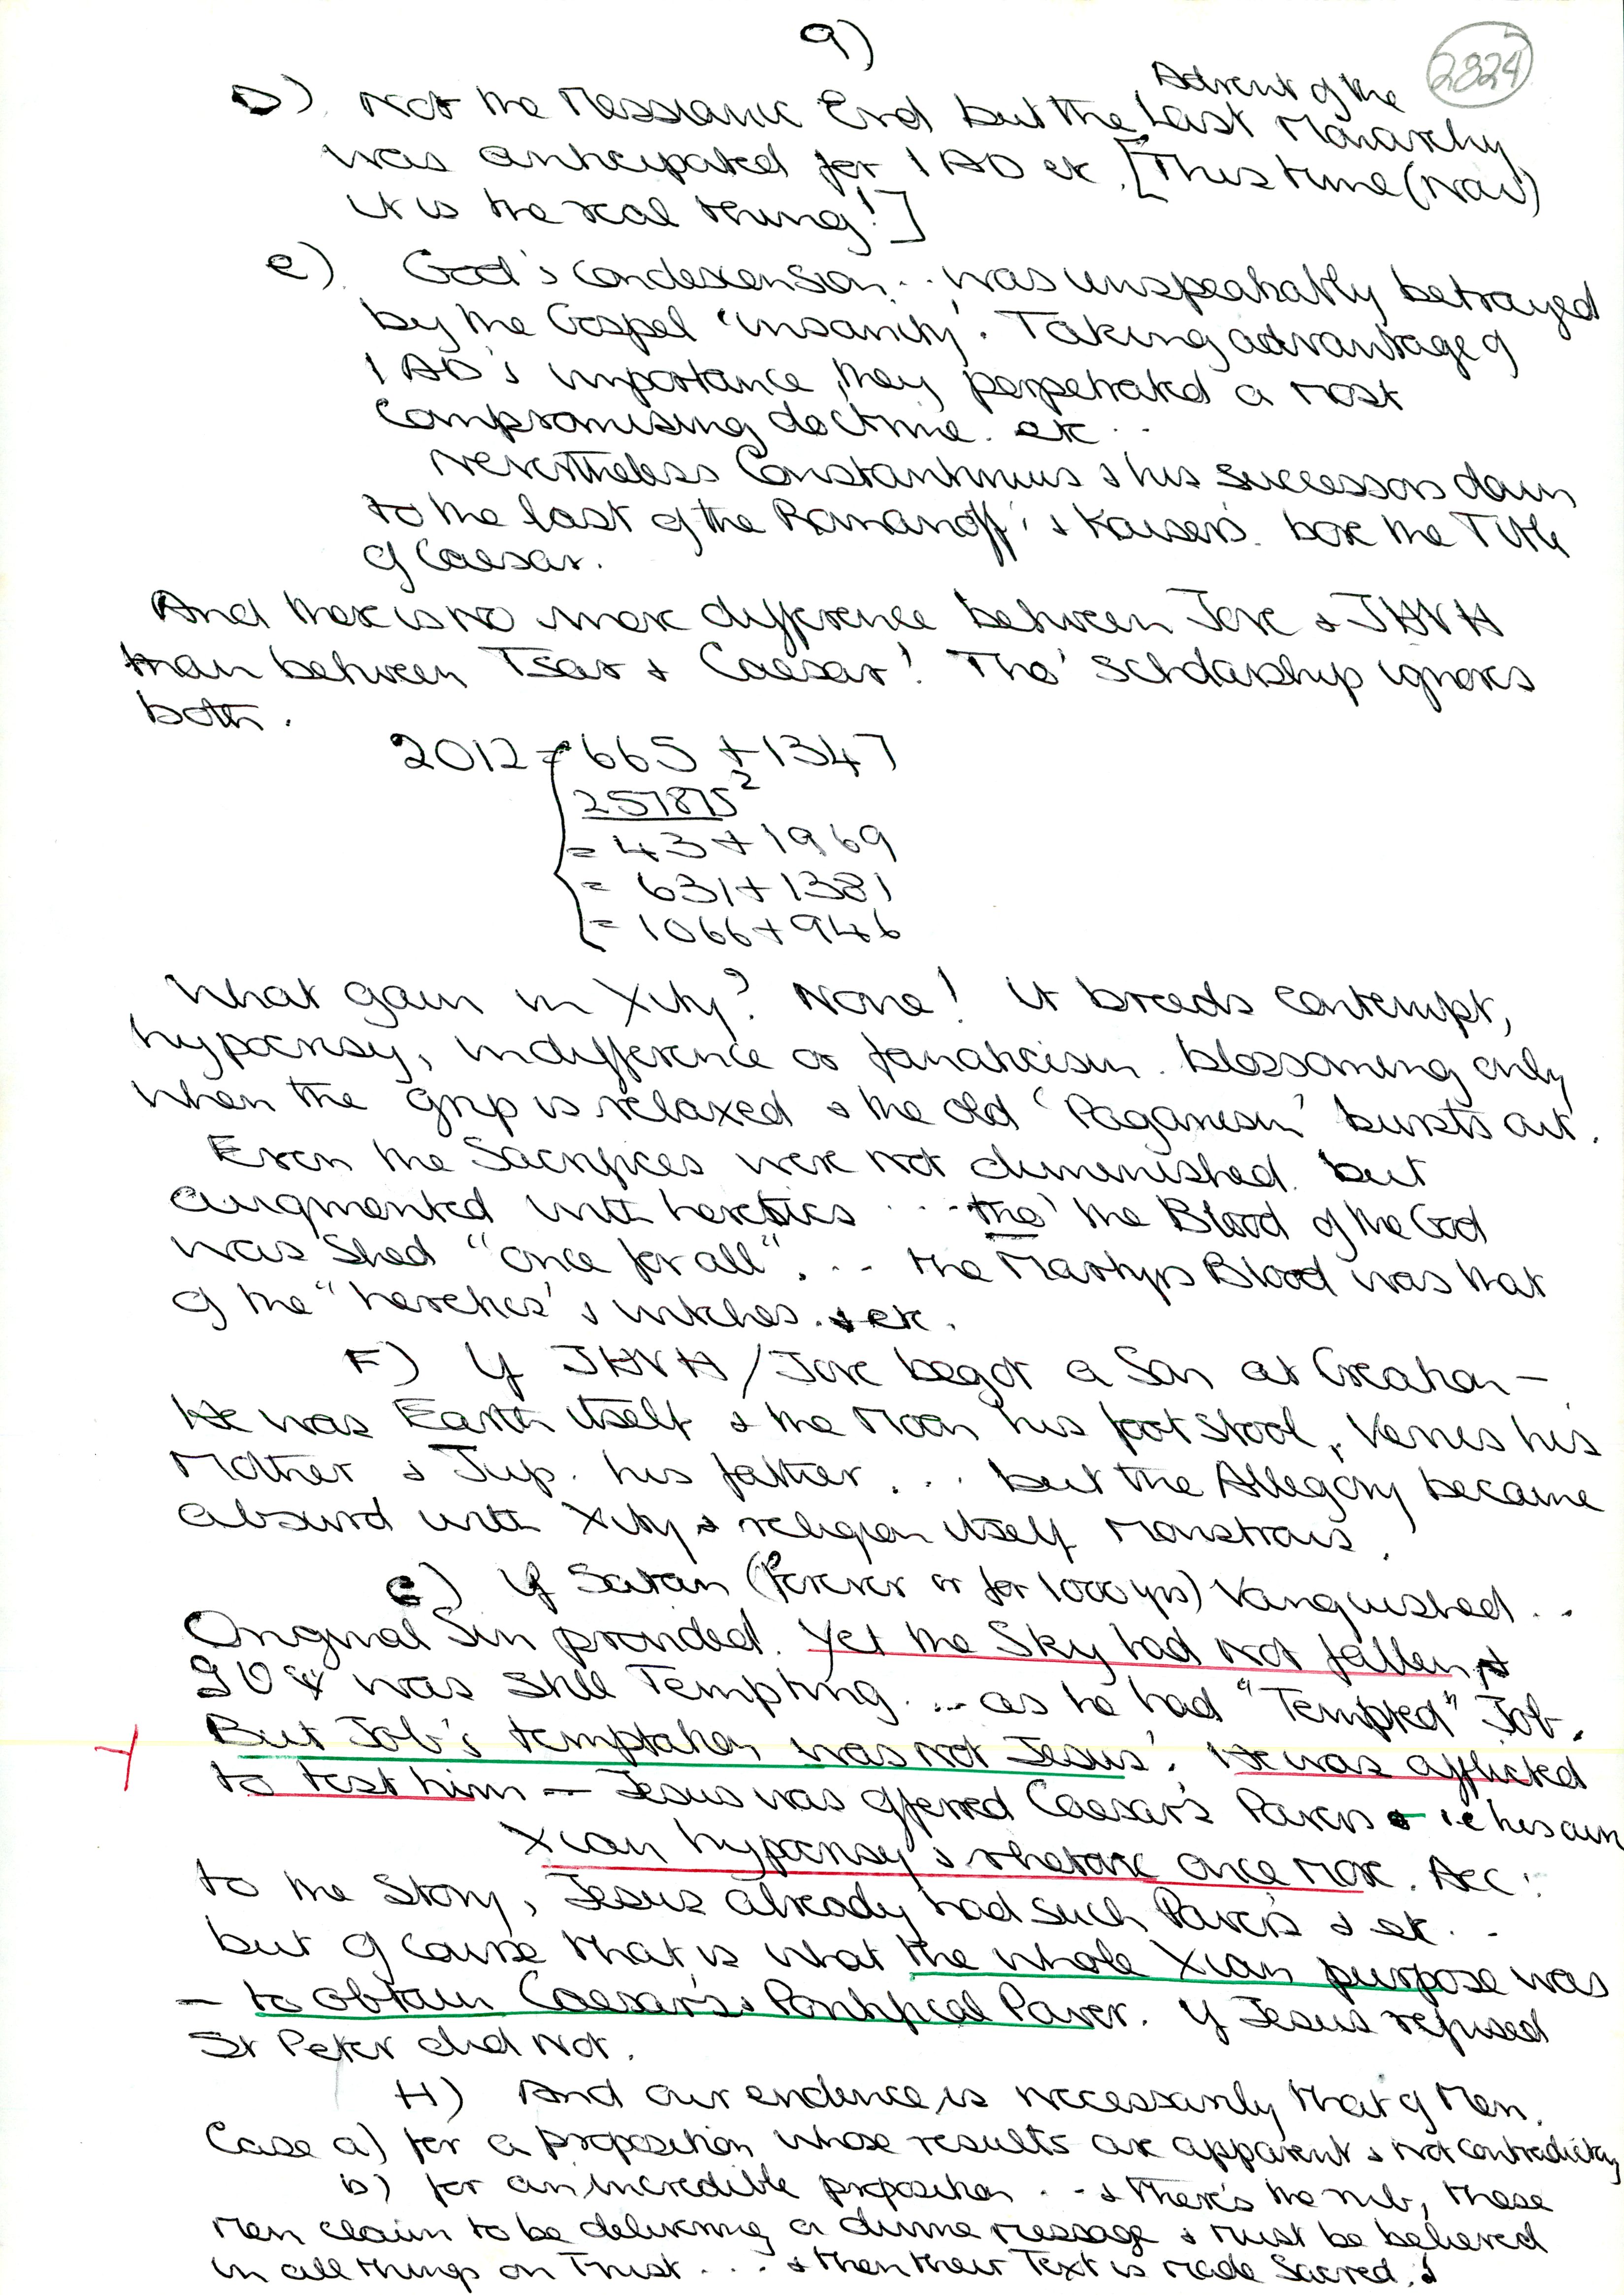 9)
2824
D) Not the Messianic End but the Advent of the Last Monarchy
was anticipated for 1 AD etc. [This time (Now)
it is the real thing!]
e) God's condescension.. was unspeakably betrayed
by the Gospel 'insanity'. Taking advantage of
1 AD's importance, they perpetrated a most
compromising doctrine. etc ..
Nevertheless Constantinus & his successors down
to the last of the Romanoff's & Kaisers. bore the Title
of Caesar.
And there is no more difference between Jove & JHVH
than between Tsar & Caesar! Tho' scholarship ignores
both.
2012 = 665 + 1347
257875²
= 43 + 1969
= 631 + 1381
= 1066 + 946
What gain in Xity? None! it breeds contempt,
hypocrisy, indifference or fanaticism. blossoming only
when the grip is relaxed & the old 'Paganism' bursts out.
Even the Sacrifices were not diminished. but
augmented with heretics ... tho' the Blood of the God
was shed "once for all". ... the Martyrs Blood was that
of the "heretics' & witches. & etc.
F) If JHVH/Jove begot a Son at Creation -
He was Earth itself & the Moon his foot stool, Venus his
Mother & Jup. his father... but the Allegory became
absurd with Xity & religion itself Monstrous.
G) If Satan (forever or for 1000 yrs) Vanquished ..
Original Sin provided. Yet the Sky had not fallen, &
was still Tempting ... as he had "Tempted" Job.
But Job's temptation was not Jesus'. He was afflicted
to test him - Jesus was offered Caesar's Powers i.e his own
Xian hypocrisy & rhetoric once more. Acc:
to the Story, Jesus already had such Powers & etc...
but of course that is what the whole Xian purpose was
- to obtain Caesar's & Pontifical Power. If Jesus refused
St Peter did not.
H) And our evidence is necessarily that of Men.
Case a) for a proposition whose results are apparent & not contradictory
b) for an incredible proposition .. & there's the rub, these
Men claim to be delivering a divine message & must be believed
in all things on Trust.... & then their Text is made Sacred. &